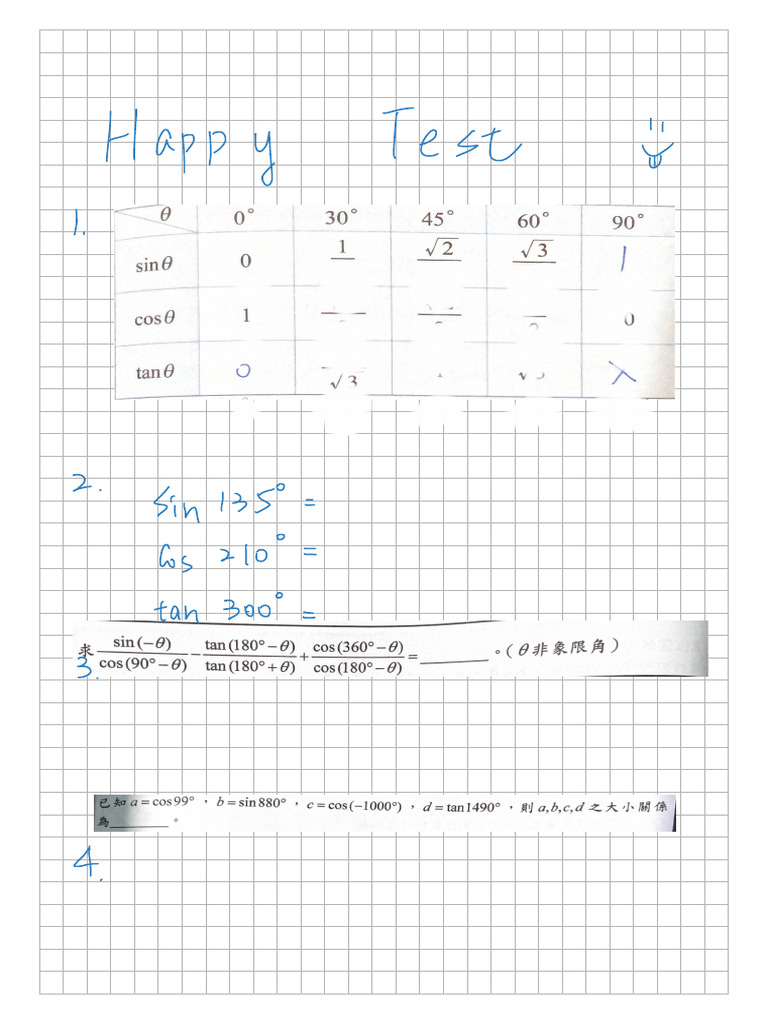 Happy Test
1.
θ 0° 30° 45° 60° 90°
sinθ 0 1 √2 √3 1
cosθ 1 0
tanθ 0 √3
2. sin 135° =
cos 210° =
tan 300° =
3. 求 sin(−θ)/cos(90°−θ) − tan(180°−θ)/tan(180°+θ) + cos(360°−θ)/cos(180°−θ) = ________。(θ非象限角)
已知 a=cos99°,b=sin880°,c=cos(−1000°),d=tan1490°,則 a,b,c,d 之大小關係
為________。
4.